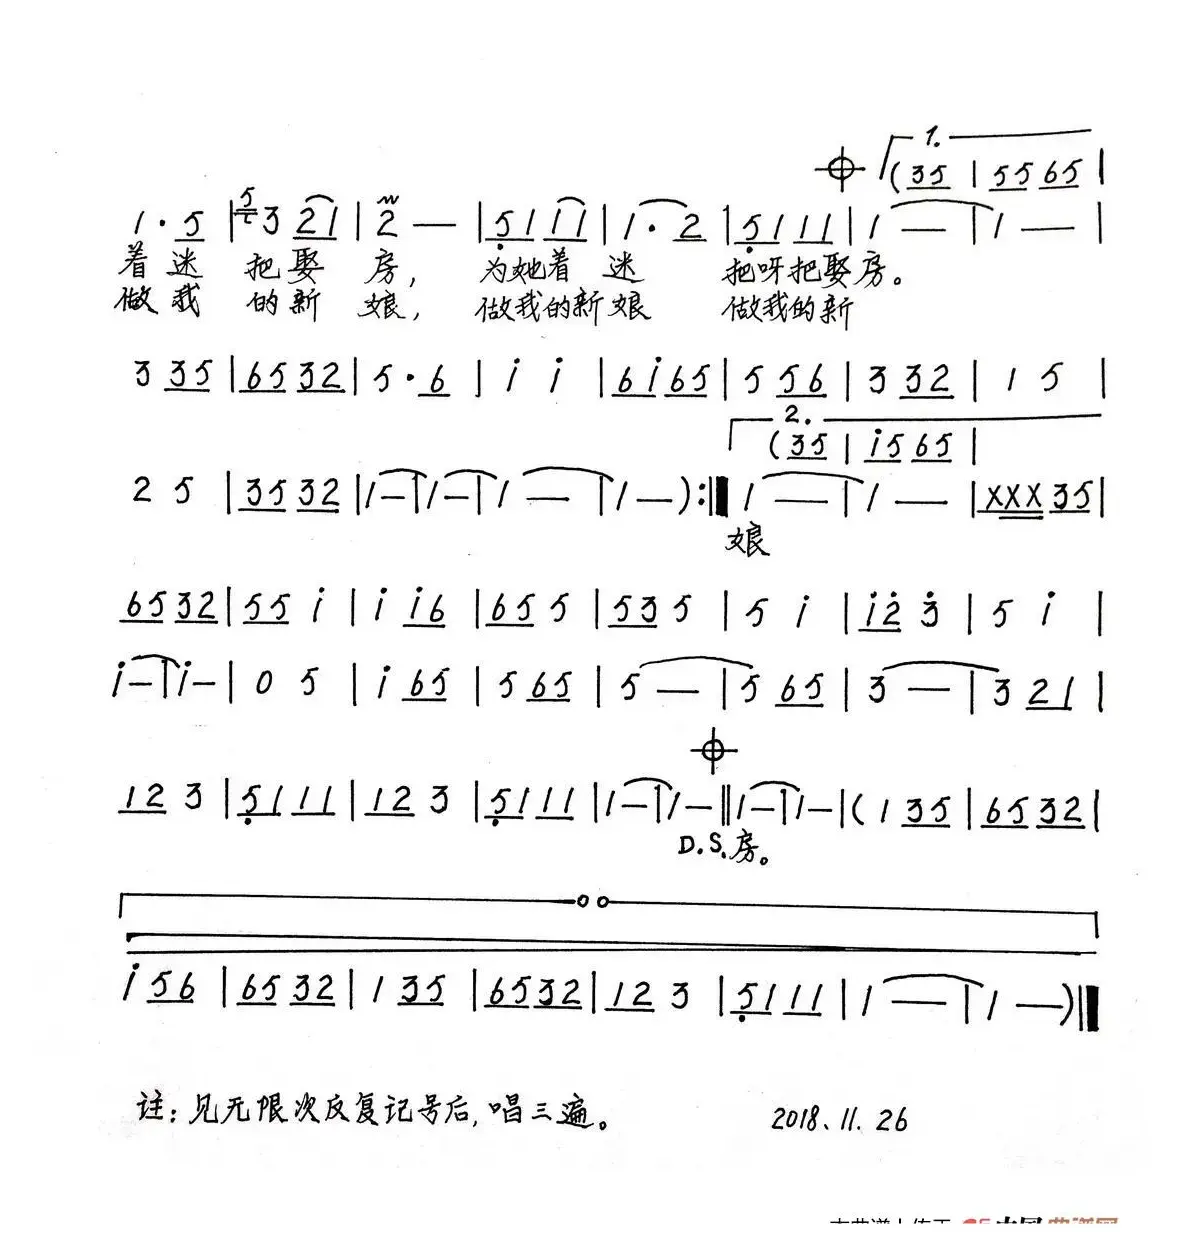 1.
(35 | 55 65 |
1·5 | 5 3 21 | 2 — | 51 11 | 1·2 | 51 11 | 1 — | 1 — |
着迷 把娶 房, 为她着 迷 把呀把娶房。
做我 的新 娘, 做我的新 娘 做我的新
3 35 | 65 32 | 5·6 | i i | 6i 65 | 5 56 | 3 32 | 1 5 |
2.
(35 | i5 65 |
2 5 | 35 32 | 1 — | 1 — | 1 — | 1 —) :‖ 1 — | 1 — | XXX 35 |
娘
65 32 | 55 i | i i6 | 65 5 | 53 5 | 5 i | i2 3 | 5 i |
i — | i — | 0 5 | i 65 | 5 65 | 5 — | 5 65 | 3 — | 3 21 |
12 3 | 51 11 | 12 3 | 51 11 | 1 — | 1 — ‖ 1 — | 1 — | (1 35 | 65 32 |
D.S. 房。
i 56 | 65 32 | 1 35 | 65 32 | 12 3 | 51 11 | 1 — | 1 —) ‖
注:见无限次反复记号后,唱三遍。 2018、11. 26